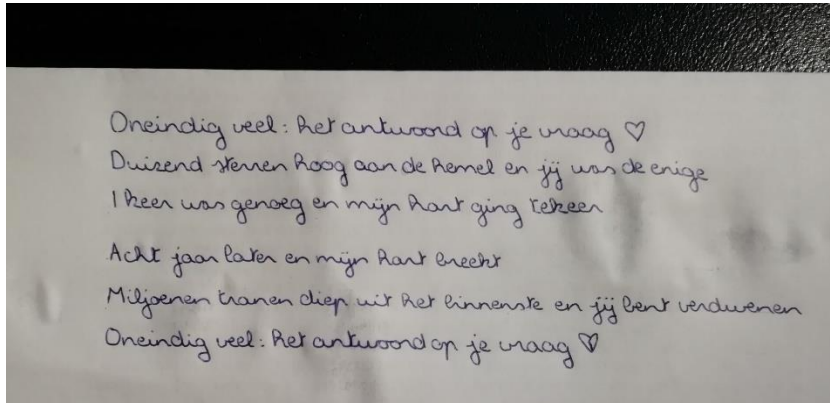 Oneindig veel: het antwoord op je vraag ♡
Duizend sterren hoog aan de hemel en jij was de enige
1 keer was genoeg en mijn hart ging tekeer
Acht jaar later en mijn hart breekt
Miljoenen tranen diep uit het binnenste en jij bent verdwenen
Oneindig veel: het antwoord op je vraag ♡